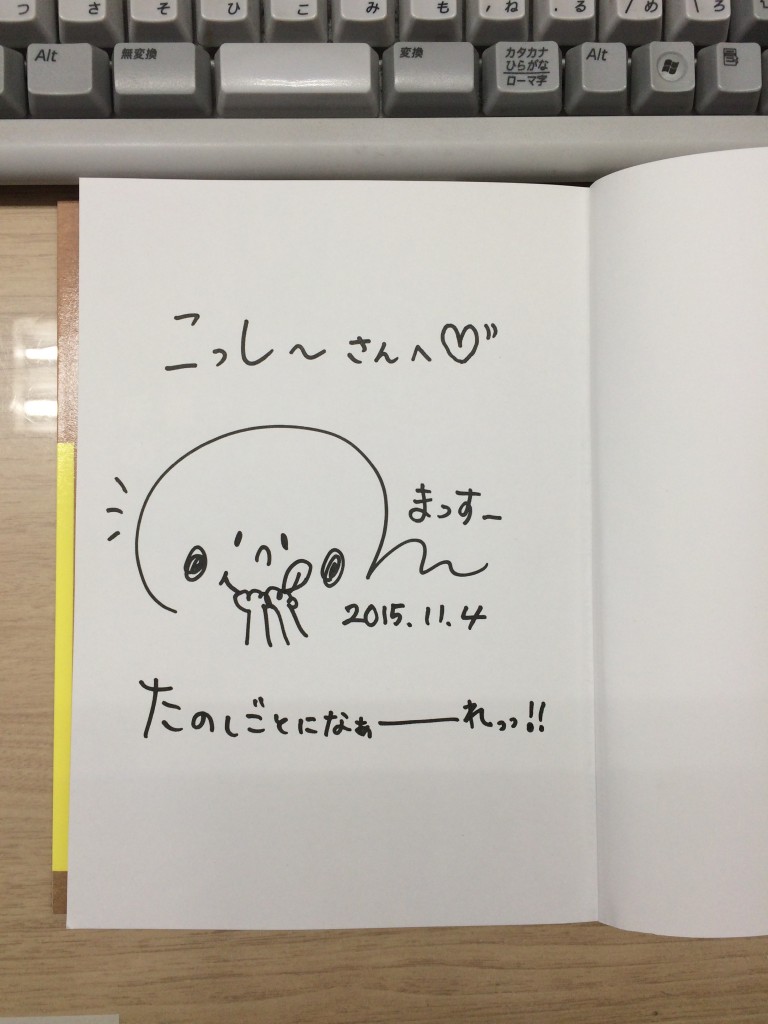 つ さ そ ひ こ み も 、ね 。る ／め ＼ろ
Alt 無変換 変換 カタカナ ひらがな ローマ字 Alt
こっし〜さんへ♡"
まっすー
2015.11.4
たのしごとになぁーーれっっ!!